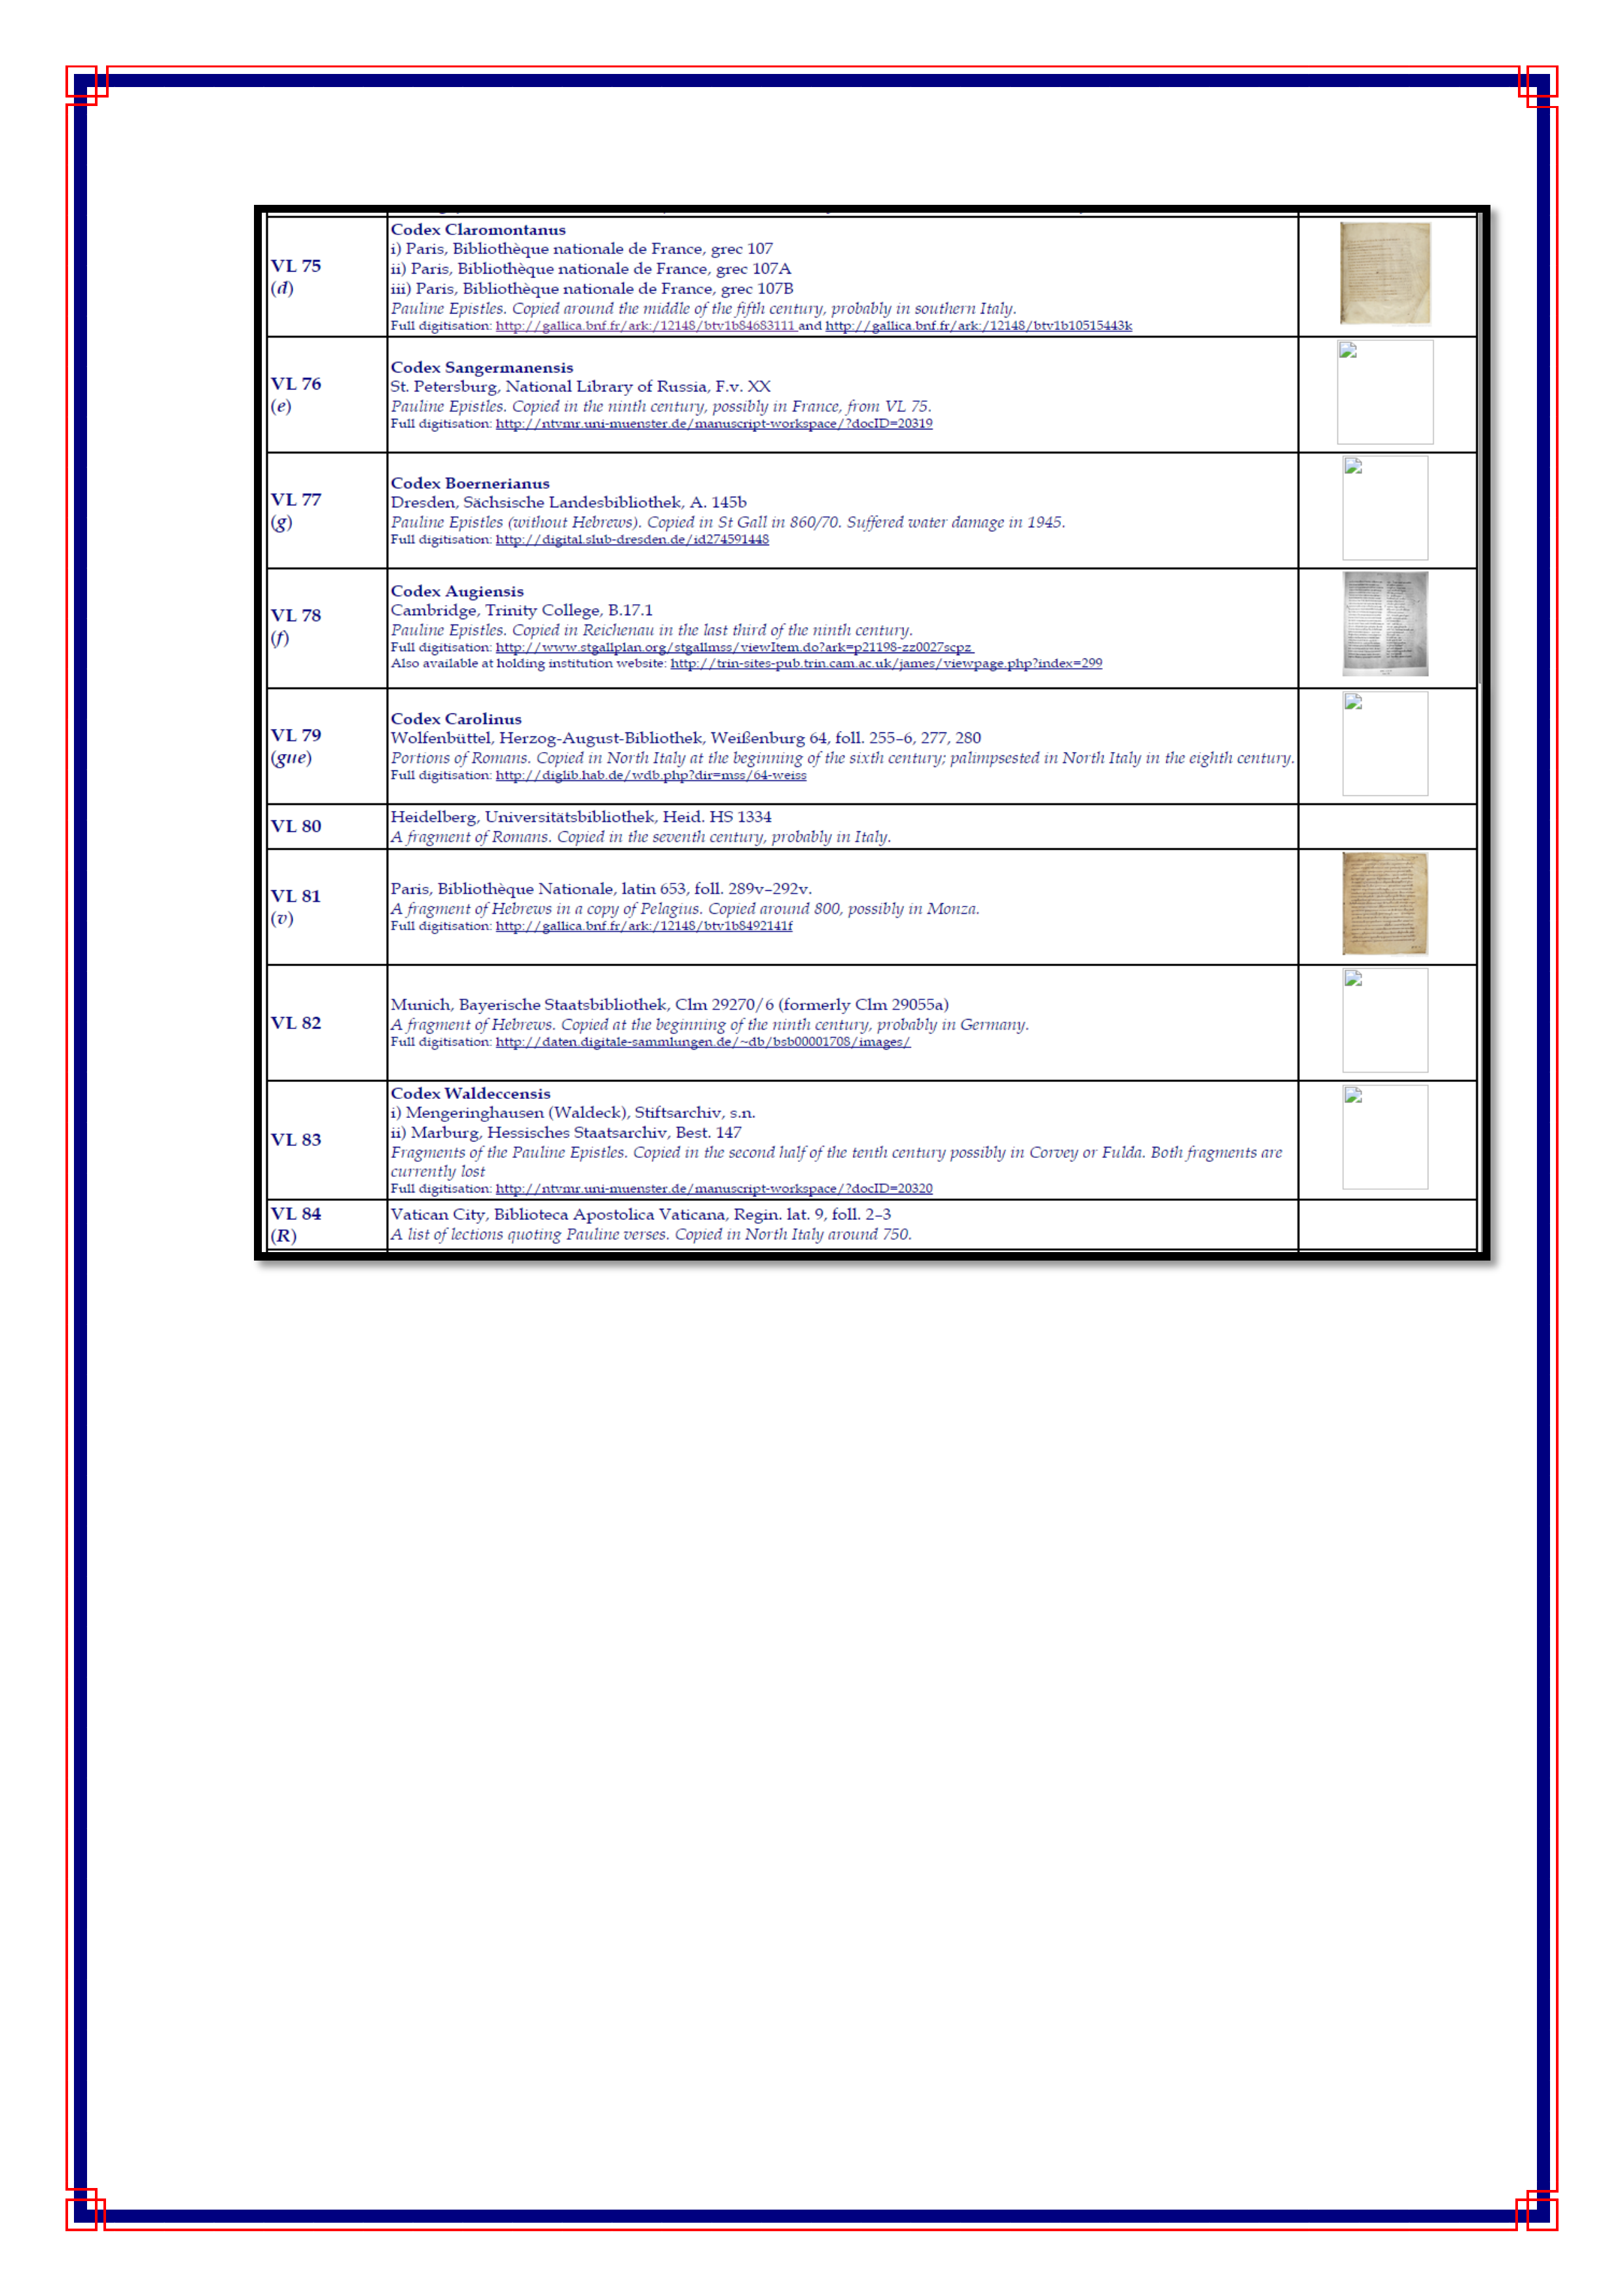 VL 75
(d)
Codex Claromontanus
i) Paris, Bibliothèque nationale de France, grec 107
ii) Paris, Bibliothèque nationale de France, grec 107A
iii) Paris, Bibliothèque nationale de France, grec 107B
Pauline Epistles. Copied around the middle of the fifth century, probably in southern Italy.
Full digitisation: http://gallica.bnf.fr/ark:/12148/btv1b84683111 and http://gallica.bnf.fr/ark:/12148/btv1b10515443k
VL 76
(e)
Codex Sangermanensis
St. Petersburg, National Library of Russia, F.v. XX
Pauline Epistles. Copied in the ninth century, possibly in France, from VL 75.
Full digitisation: http://ntvmr.uni-muenster.de/manuscript-workspace/?docID=20319
VL 77
(g)
Codex Boernerianus
Dresden, Sächsische Landesbibliothek, A. 145b
Pauline Epistles (without Hebrews). Copied in St Gall in 860/70. Suffered water damage in 1945.
Full digitisation: http://digital.slub-dresden.de/id274591448
VL 78
(f)
Codex Augiensis
Cambridge, Trinity College, B.17.1
Pauline Epistles. Copied in Reichenau in the last third of the ninth century.
Full digitisation: http://www.stgallplan.org/stgallmss/viewItem.do?ark=p21198-zz0027scpz
Also available at holding institution website: http://trin-sites-pub.trin.cam.ac.uk/james/viewpage.php?index=299
VL 79
(gue)
Codex Carolinus
Wolfenbüttel, Herzog-August-Bibliothek, Weißenburg 64, foll. 255–6, 277, 280
Portions of Romans. Copied in North Italy at the beginning of the sixth century; palimpsested in North Italy in the eighth century.
Full digitisation: http://diglib.hab.de/wdb.php?dir=mss/64-weiss
VL 80
Heidelberg, Universitätsbibliothek, Heid. HS 1334
A fragment of Romans. Copied in the seventh century, probably in Italy.
VL 81
(v)
Paris, Bibliothèque Nationale, latin 653, foll. 289v–292v.
A fragment of Hebrews in a copy of Pelagius. Copied around 800, possibly in Monza.
Full digitisation: http://gallica.bnf.fr/ark:/12148/btv1b8492141f
VL 82
Munich, Bayerische Staatsbibliothek, Clm 29270/6 (formerly Clm 29055a)
A fragment of Hebrews. Copied at the beginning of the ninth century, probably in Germany.
Full digitisation: http://daten.digitale-sammlungen.de/~db/bsb00001708/images/
VL 83
Codex Waldeccensis
i) Mengeringhausen (Waldeck), Stiftsarchiv, s.n.
ii) Marburg, Hessisches Staatsarchiv, Best. 147
Fragments of the Pauline Epistles. Copied in the second half of the tenth century possibly in Corvey or Fulda. Both fragments are
currently lost
Full digitisation: http://ntvmr.uni-muenster.de/manuscript-workspace/?docID=20320
VL 84
(R)
Vatican City, Biblioteca Apostolica Vaticana, Regin. lat. 9, foll. 2–3
A list of lections quoting Pauline verses. Copied in North Italy around 750.